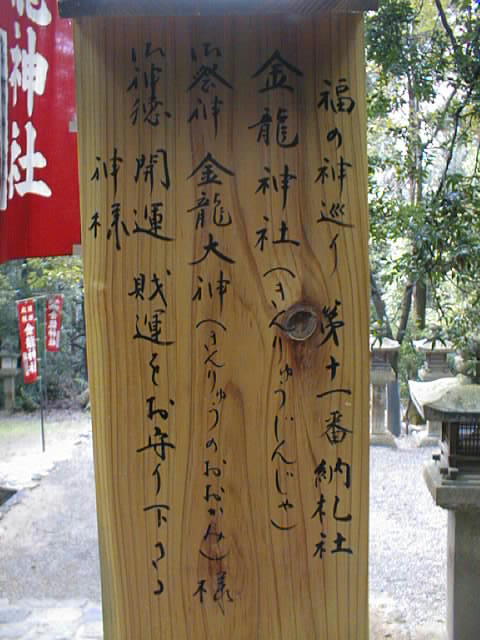 福の神巡り 第十一番納札社
金龍神社(きんりゅうじんじゃ)
御祭神 金龍大神(きんりゅうのおおかみ)様
御神徳 開運 財運をお守り下さる
神様
龍神社
金龍神社